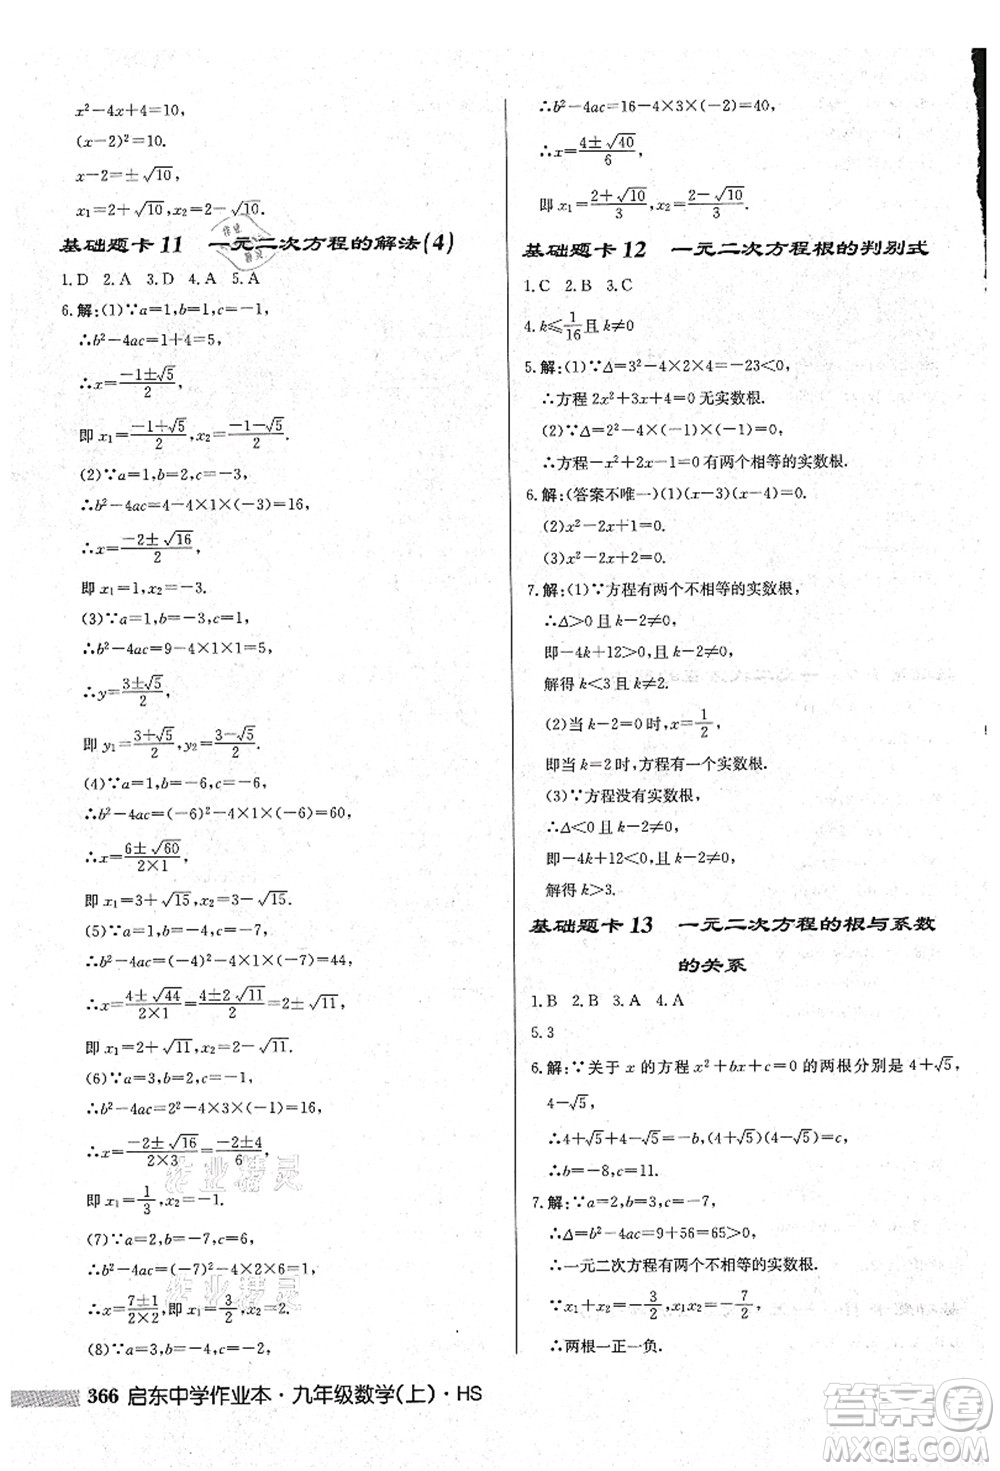 x²-4x+4=10,
(x-2)²=10.
x-2=±√10,
x₁=2+√10,x₂=2-√10.
基础题卡11 一元二次方程的解法(4)
1.D 2.A 3.D 4.A 5.A
6.解:(1)∵a=1,b=1,c=-1,
∴b²-4ac=1+4=5,
∴x=(-1±√5)/2,
即x₁=(-1+√5)/2,x₂=(-1-√5)/2.
(2)∵a=1,b=2,c=-3,
∴b²-4ac=4-4×1×(-3)=16,
∴x=(-2±√16)/2,
即x₁=1,x₂=-3.
(3)∵a=1,b=-3,c=1,
∴b²-4ac=9-4×1×1=5,
∴y=(3±√5)/2,
即y₁=(3+√5)/2,y₂=(3-√5)/2.
(4)∵a=1,b=-6,c=-6,
∴b²-4ac=(-6)²-4×1×(-6)=60,
∴x=(6±√60)/(2×1),
即x₁=3+√15,x₂=3-√15.
(5)∵a=1,b=-4,c=-7,
∴b²-4ac=(-4)²-4×1×(-7)=44,
∴x=(4±√44)/(2×1)=(4±2√11)/2=2±√11,
即x₁=2+√11,x₂=2-√11.
(6)∵a=3,b=2,c=-1,
∴b²-4ac=2²-4×3×(-1)=16,
∴x=(-2±√16)/(2×3)=(-2±4)/6,
即x₁=1/3,x₂=-1.
(7)∵a=2,b=-7,c=6,
∴b²-4ac=(-7)²-4×2×6=1,
∴x=(7±1)/(2×2),即x₁=2,x₂=3/2.
(8)∵a=3,b=-4,c=-2,
∴b²-4ac=16-4×3×(-2)=40,
∴x=(4±√40)/6,
即x₁=(2+√10)/3,x₂=(2-√10)/3.
基础题卡12 一元二次方程根的判别式
1.C 2.B 3.C
4.k≤1/16且k≠0
5.解:(1)∵Δ=3²-4×2×4=-23<0,
∴方程2x²+3x+4=0无实数根.
(2)∵Δ=2²-4×1×1=0,
∴方程-x²+2x-1=0有两个相等的实数根.
6.解:(答案不唯一)(1)(x-3)(x-4)=0.
(2)x²-2x+1=0.
(3)x²-2x+5=0.
7.解:(1)∵方程有两个不相等的实数根,
∴Δ>0且k-2≠0,
即-4k+12>0且k-2≠0,
解得k<3且k≠2.
(2)当k-2=0时,x=1/2,
即当k=2时,方程有一个实数根.
(3)∵方程没有实数根,
∴Δ<0且k-2≠0,
即-4k+12<0且k-2≠0,
解得k>3.
基础题卡13 一元二次方程的根与系数
的关系
1.B 2.B 3.A 4.A
5.3
6.解:∵关于x的方程x²+bx+c=0的两根分别是4+√5,
4-√5,
∴4+√5+4-√5=-b,(4+√5)(4-√5)=c,
∴b=-8,c=11.
7.解:∵a=2,b=3,c=-7,
∴Δ=b²-4ac=9+56=65>0,
∴一元二次方程有两个不相等的实数根.
∵x₁+x₂=-3/2,x₁x₂=-7/2,
∴两根一正一负.
366 启东中学作业本·九年级数学(上)·HS
作业精灵
作业精灵
作业精灵
答案圈
MXQE.COM